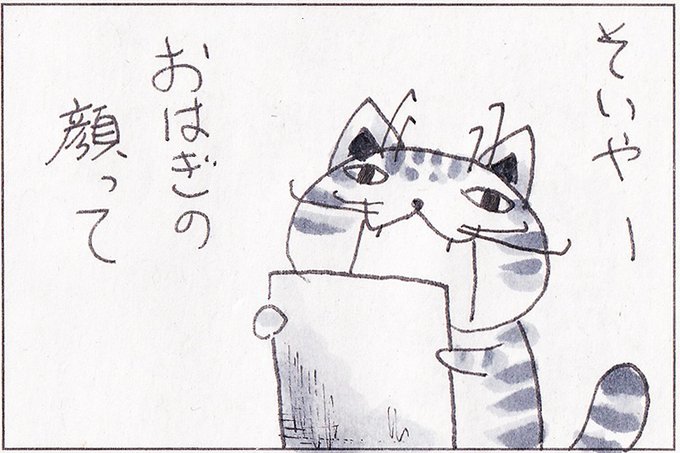 そいやー
おはぎの
顔って